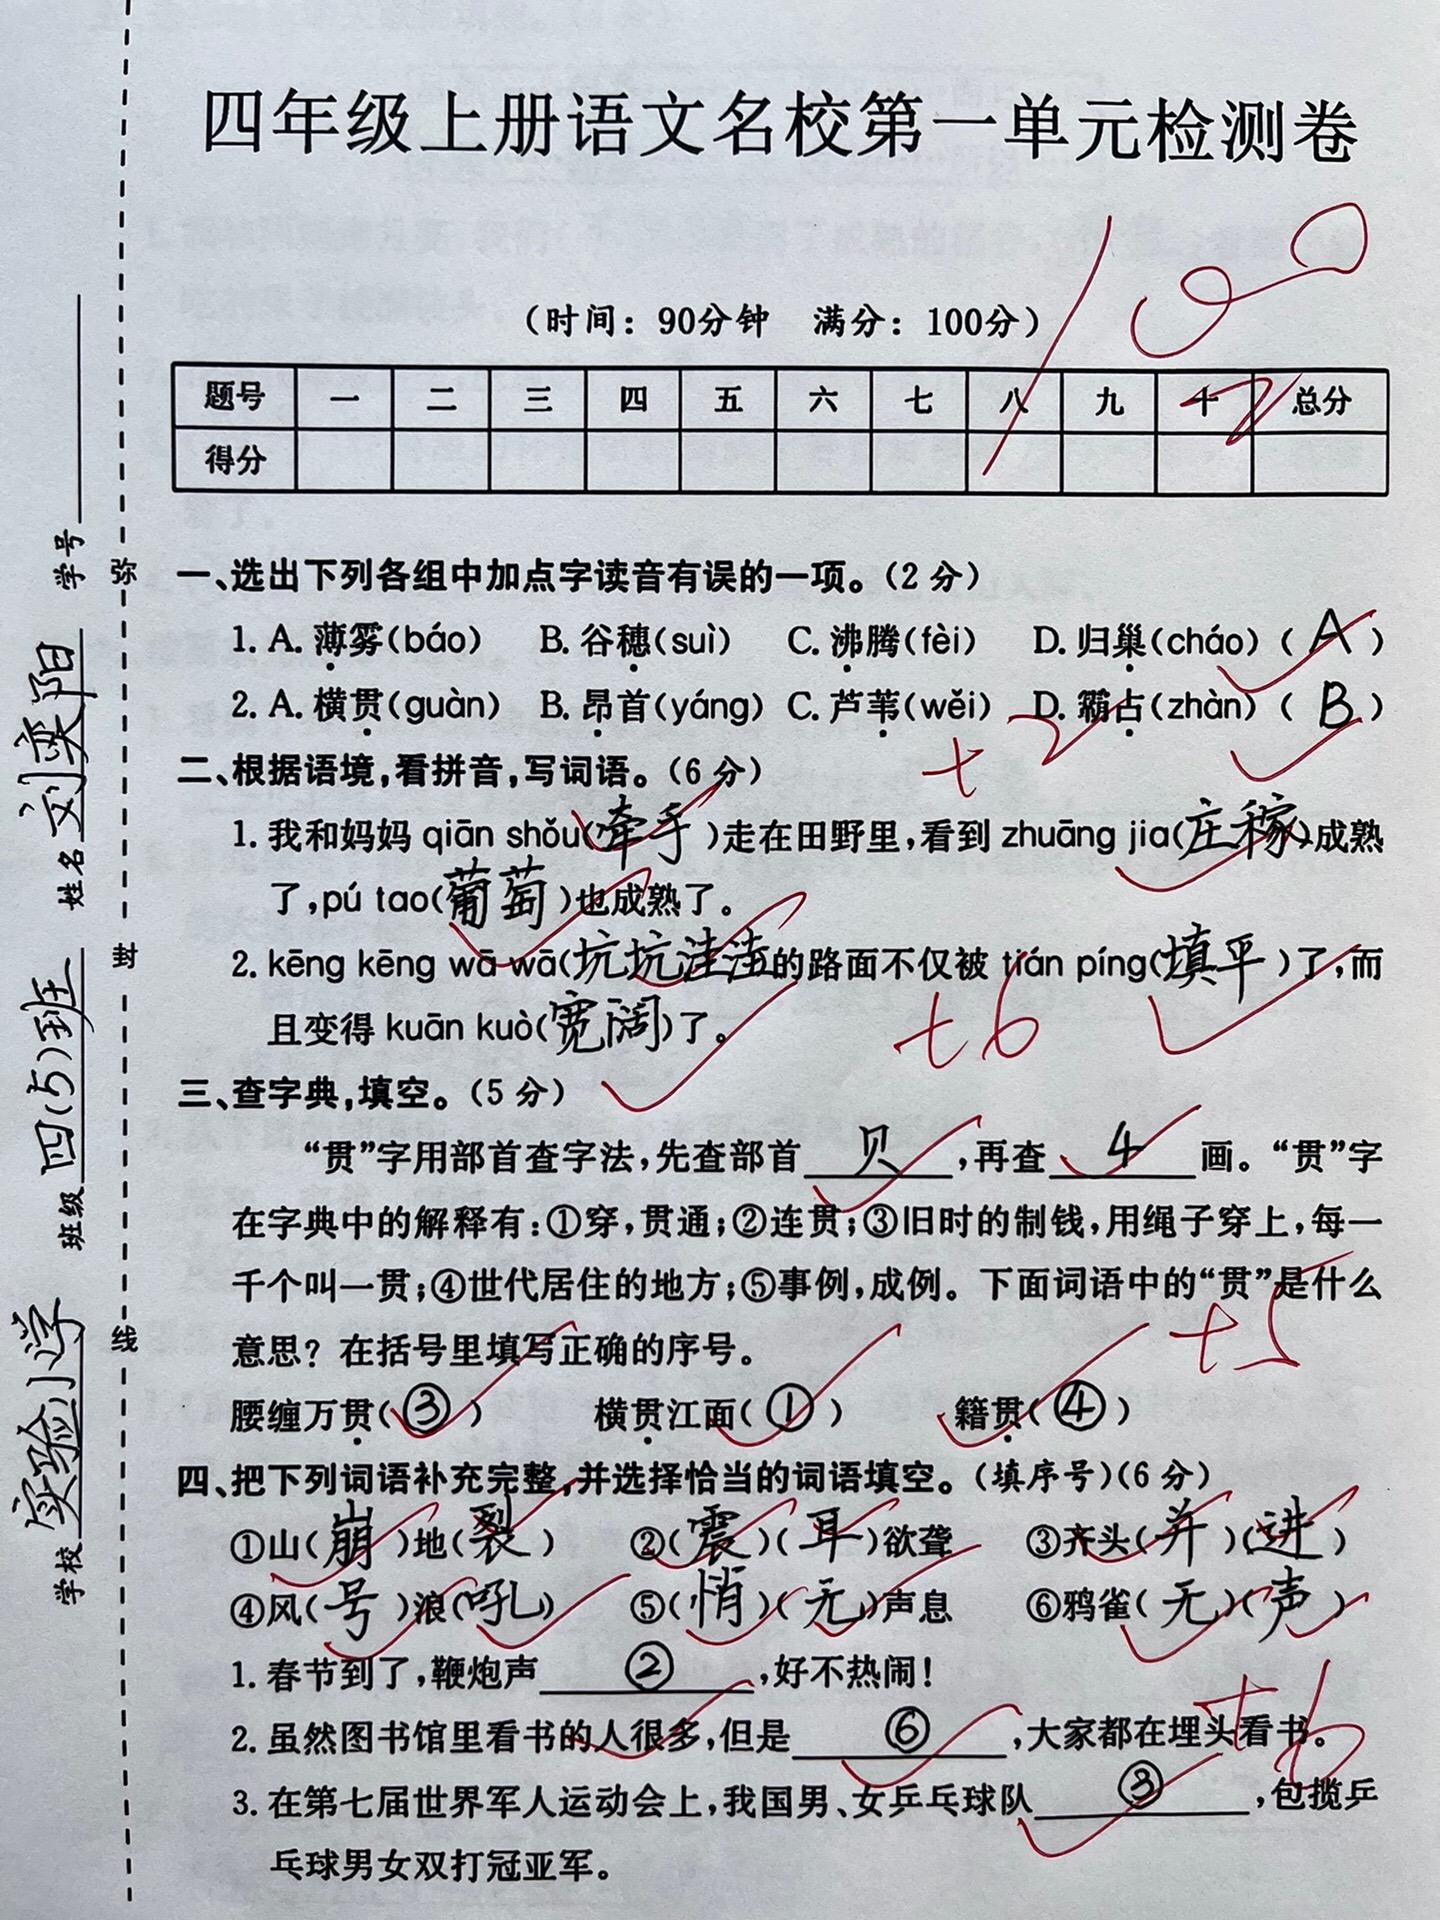 四年级上册语文名校第一单元检测卷
100
（时间：90分钟 满分：100分）
题号 一 二 三 四 五 六 七 八 九 十 总分
得分
学校 实验小学 班级 四(5)班 姓名 刘奕阳 学号
弥 封 线
一、选出下列各组中加点字读音有误的一项。（2分）
1. A. 薄雾(báo) B. 谷穗(suì) C. 沸腾(fèi) D. 归巢(cháo) ( A )
2. A. 横贯(guàn) B. 昂首(yáng) C. 芦苇(wěi) D. 霸占(zhàn) ( B )
+2
二、根据语境，看拼音，写词语。（6分）
1. 我和妈妈 qiān shǒu(牵手)走在田野里，看到 zhuāng jia(庄稼)成熟
了，pú tao(葡萄)也成熟了。
2. kēng kēng wā wā(坑坑洼洼)的路面不仅被 tián píng(填平)了，而
且变得 kuān kuò(宽阔)了。
+6
三、查字典，填空。（5分）
“贯”字用部首查字法，先查部首 贝 ，再查 4 画。“贯”字
在字典中的解释有：①穿，贯通；②连贯；③旧时的制钱，用绳子穿上，每一
千个叫一贯；④世代居住的地方；⑤事例，成例。下面词语中的“贯”是什么
意思？在括号里填写正确的序号。
+5
腰缠万贯( ③ ) 横贯江面( ① ) 籍贯( ④ )
四、把下列词语补充完整，并选择恰当的词语填空。（填序号）（6分）
①山(崩)地(裂) ②(震)(耳)欲聋 ③齐头(并)(进)
④风(号)浪(吼) ⑤(悄)(无)声息 ⑥鸦雀(无)(声)
1. 春节到了，鞭炮声 ② ，好不热闹！
+6
2. 虽然图书馆里看书的人很多，但是 ⑥ ，大家都在埋头看书。
3. 在第七届世界军人运动会上，我国男、女乒乓球队 ③ ，包揽乒
乓球男女双打冠亚军。